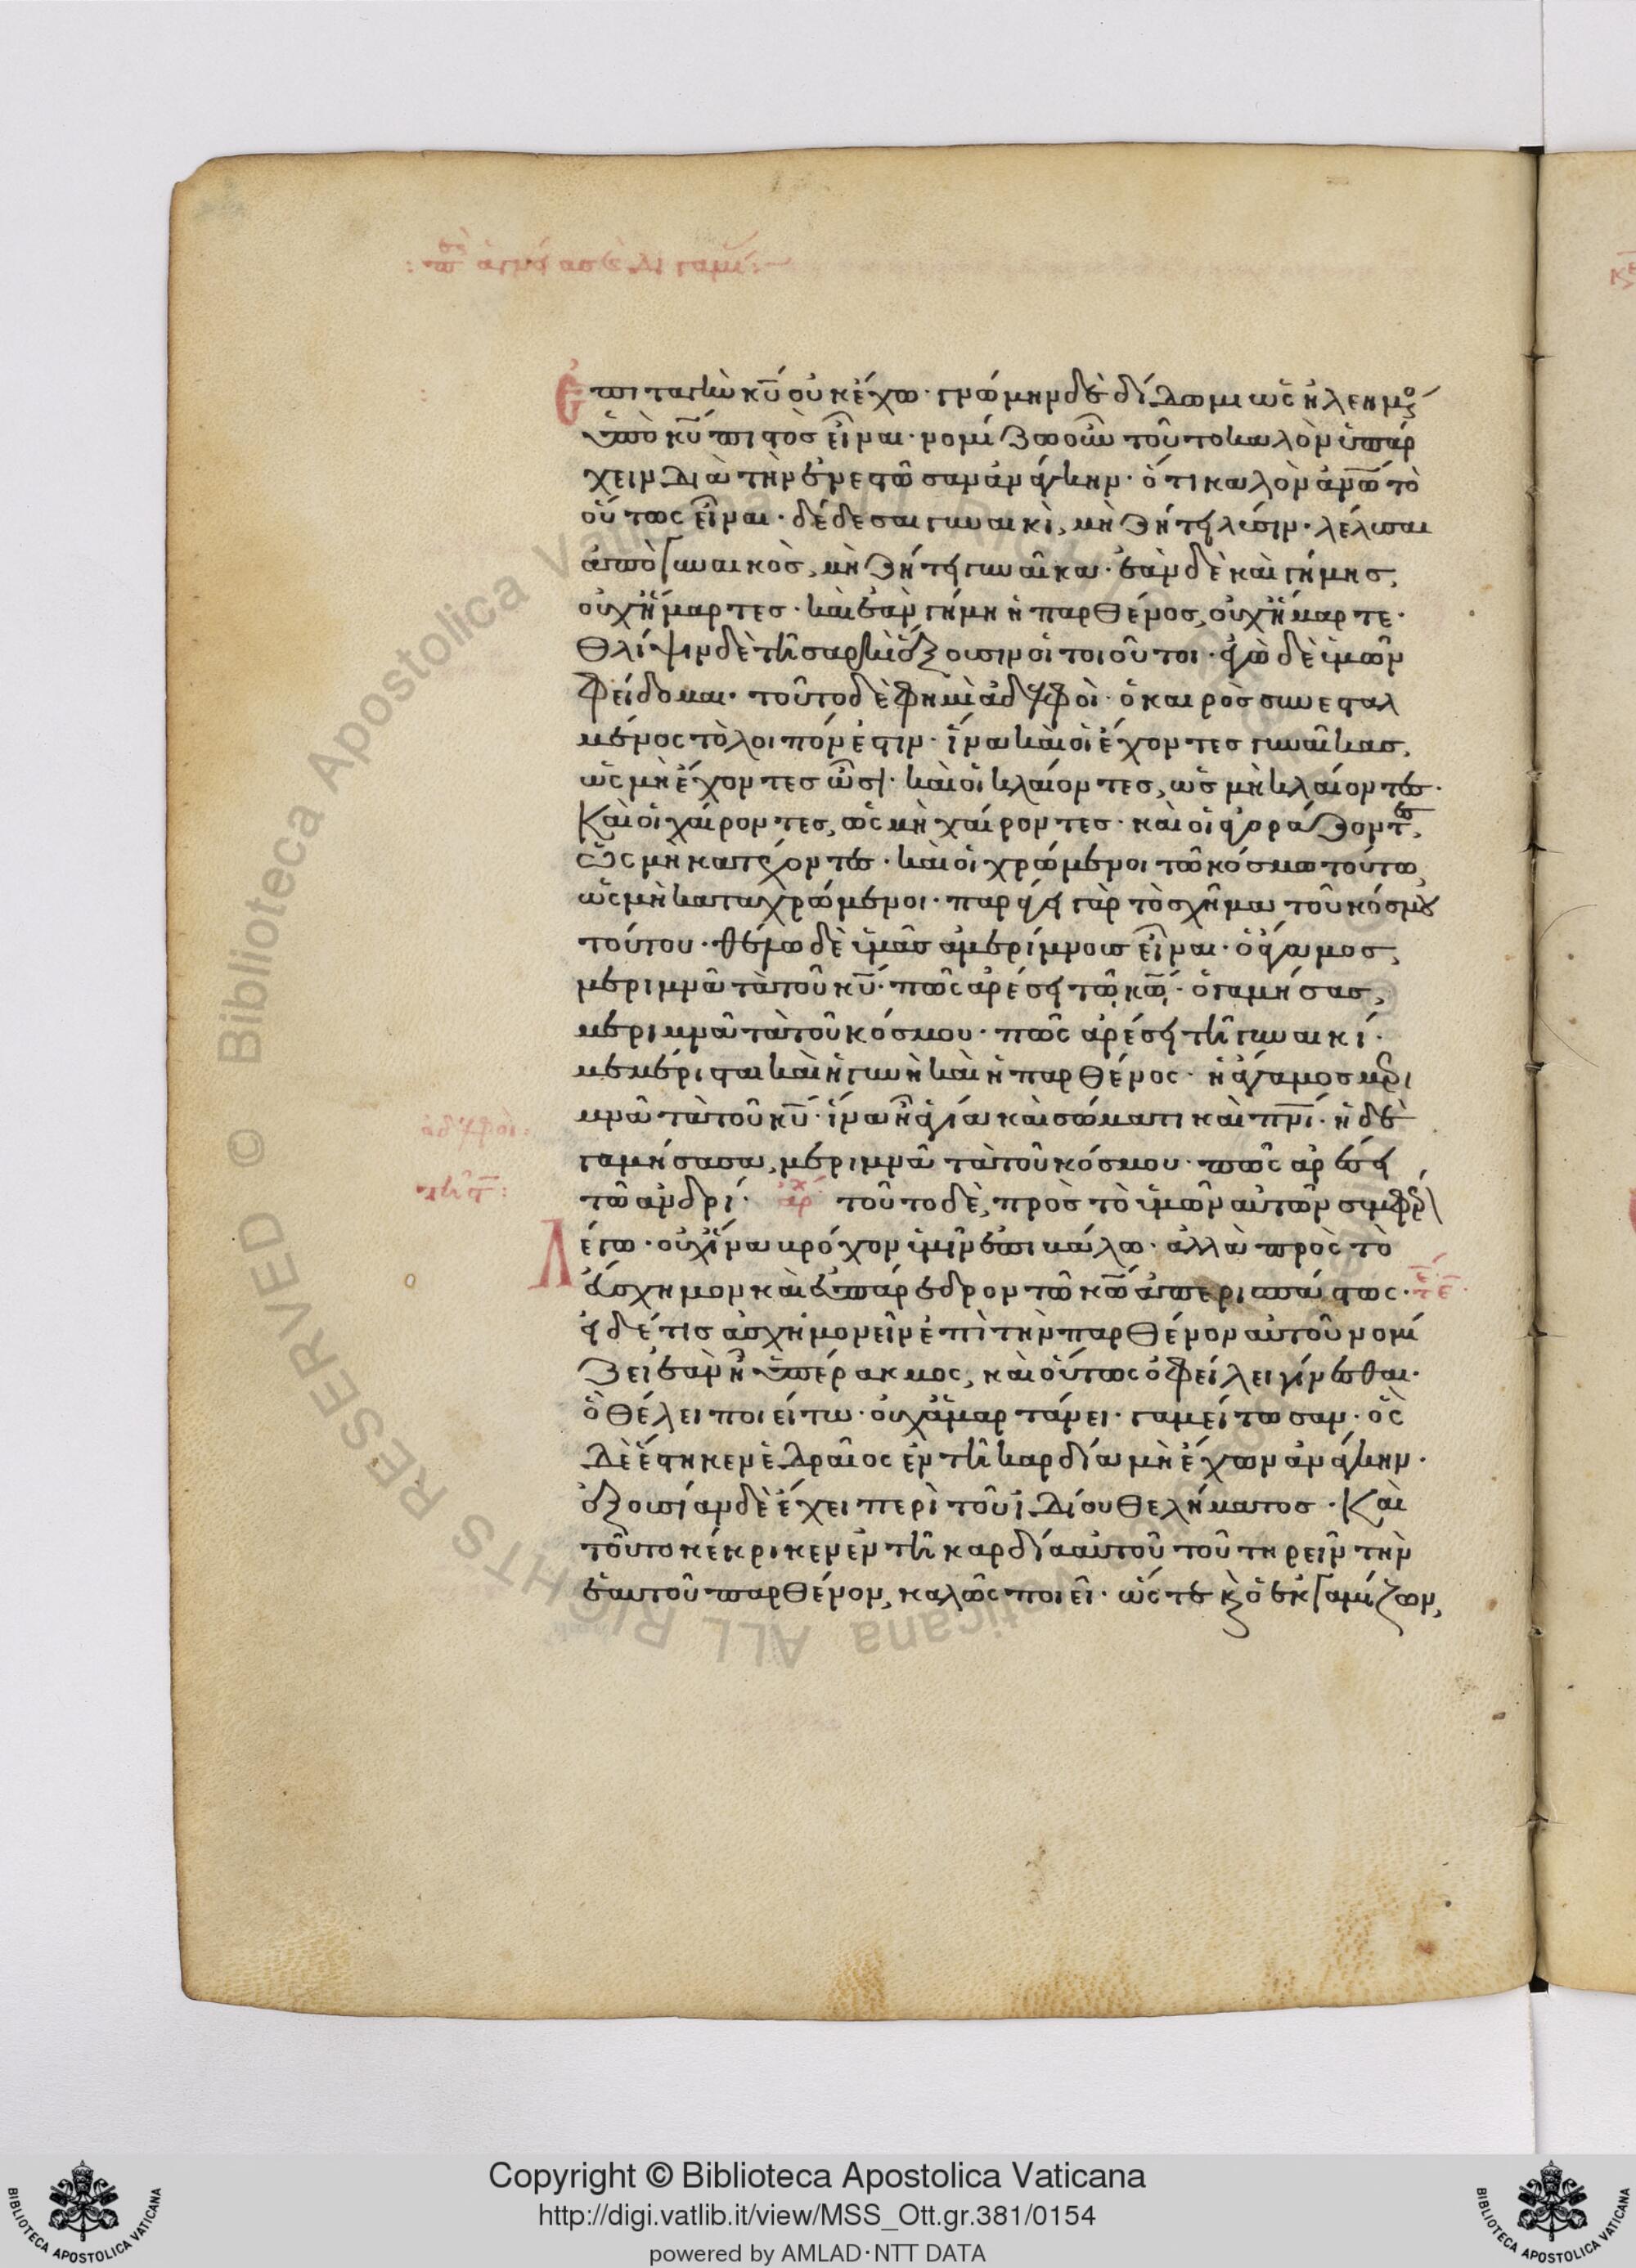 ἐπιταγὴν κυ οὐκ ἔχω· γνώμην δὲ δίδωμι ὡς ἠλεημενος
ὑπὸ κυ πιστὸς εἶναι· νομίζω οὖν τοῦτο καλὸν ὑπάρ
χειν διὰ τὴν ἐνεστῶσαν ἀνάγκην· ὅτι καλὸν ἀνω τὸ
οὕτως εἶναι· δέδεσαι γυναικὶ, μὴ ζήτει λύσιν· λέλυσαι
ἀπὸ γυναικὸς, μὴ ζήτει γυναῖκα· ἐὰν δὲ καὶ γήμης,
οὐχ ἥμαρτες· καὶ ἐὰν γήμη ἡ παρθένος, οὐχ ἥμαρτε·
θλίψιν δὲ τῆ σαρκὶ ἕξουσιν οἱ τοιοῦτοι· ἐγὼ δὲ ὑμῶν
φείδομαι· τοῦτο δὲ φημὶ ἀδελφοὶ· ὁ καιρὸς συνεσταλ
μένος τὸ λοιπόν ἐστιν· ἵνα καὶ οἱ ἔχοντες γυναῖκας,
ὡς μὴ ἔχοντες ὦσι· καὶ οἱ κλαίοντες, ὡς μὴ κλαίοντες·
καὶ οἱ χαίροντες, ὡς μὴ χαίροντες· καὶ οἱ ἀγοράζοντες,
ὡς μὴ κατέχοντες· καὶ οἱ χρώμενοι τῶ κόσμω τούτω,
ὡς μὴ καταχρώμενοι· παράγει γὰρ τὸ σχῆμα τοῦ κόσμου
τούτου· θέλω δὲ ὑμᾶς ἀμερίμνους εἶναι· ὁ ἄγαμος,
μεριμνᾶ τὰ τοῦ κυ· πῶς ἀρέσει τῶ κω· ὁ γαμήσας,
μεριμνᾶ τὰ τοῦ κόσμου· πῶς ἀρέσει τῆ γυναικί·
μεμέρισται καὶ ἡ γυνὴ καὶ ἡ παρθένος· ἡ ἄγαμος μερι
μνᾶ τὰ τοῦ κυ· ἵνα ἦ ἁγία καὶ σώματι καὶ πνι· ἡ δὲ
γαμήσασα, μεριμνᾶ τὰ τοῦ κόσμου· πῶς ἀρέσει
τῶ ἀνδρί· ἀρχ τοῦτο δὲ, πρὸς τὸ ὑμῶν αὐτῶν συμφέρον
λέγω· οὐχ ἵνα βρόχον ὑμῖν ἐπιβάλω· ἀλλὰ πρὸς τὸ
εὔσχημον καὶ εὐπάρεδρον τῶ κω ἀπερισπάστως· τε
εἰ δέ τις ἀσχημονεῖν ἐπὶ τὴν παρθένον αὐτοῦ νομί
ζει ἐὰν ἦ ὑπέρακμος, καὶ οὕτως ὀφείλει γίνεσθαι·
ὃ θέλει ποιείτω· οὐχ ἁμαρτάνει· γαμείτωσαν· ὃς
δὲ ἕστηκεν ἑδραῖος ἐν τῆ καρδία μὴ ἔχων ἀνάγκην·
ἐξουσίαν δὲ ἔχει περὶ τοῦ ἰδίου θελήματος· καὶ
τοῦτο κέκρικεν ἐν τῆ καρδία αὐτοῦ τοῦ τηρεῖν τὴν
ἑαυτοῦ παρθένον, καλῶς ποιεῖ· ὥς τε κ ὁ ἐκγαμίζων,
Copyright © Biblioteca Apostolica Vaticana
http://digi.vatlib.it/view/MSS_Ott.gr.381/0154
powered by AMLAD·NTT DATA
BIBLIOTECA APOSTOLICA VATICANA
BIBLIOTECA APOSTOLICA VATICANA